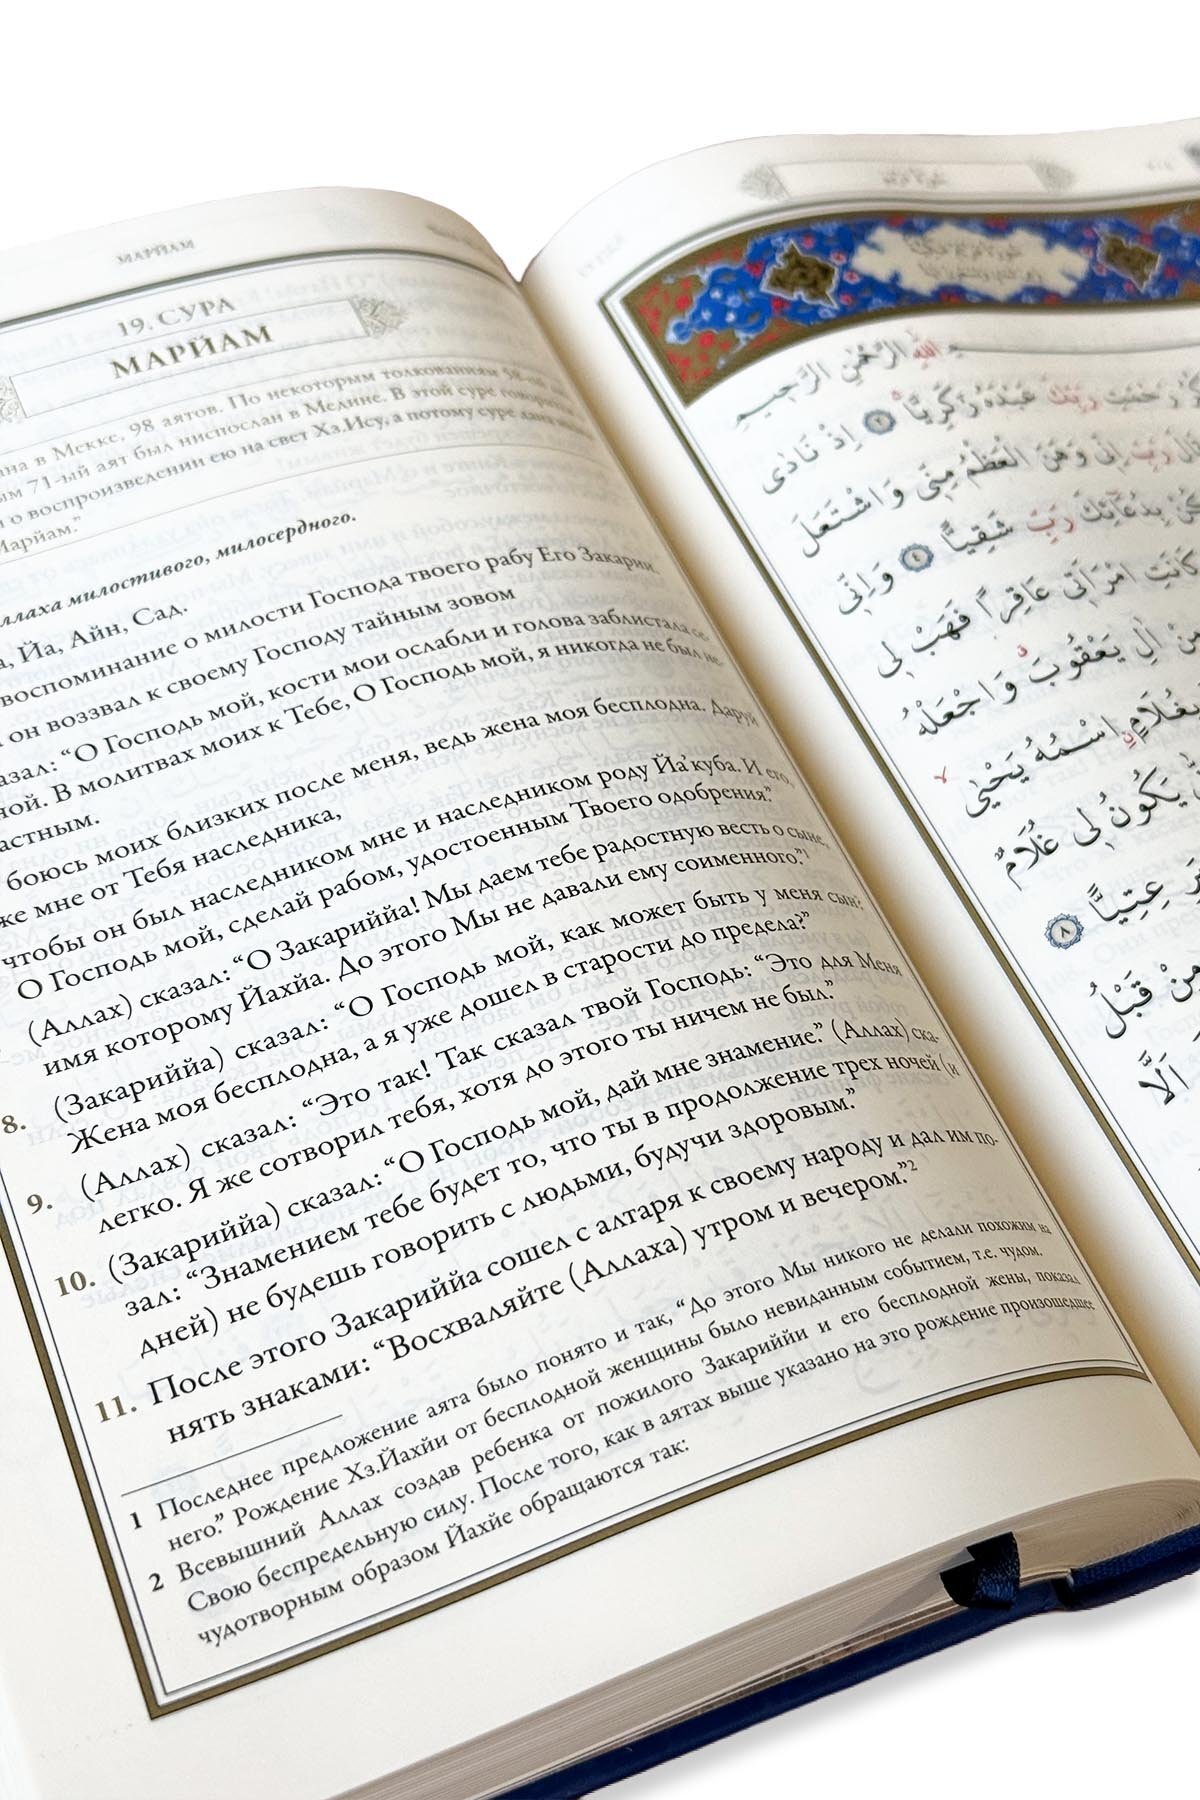 МАРЙАМ
19. СУРА
МАРЙАМ
ана в Мекке, 98 аятов. По некоторым толкованиям 58-ой
ым 71-ый аят был ниспослан в Медине. В этой суре говорится
и о воспроизведении ею на свет Хз.Ису, а потому суре дано
Марйам."
ллаха милостивого, милосердного.
а, Йа, Айн, Сад.
воспоминание о милости Господа твоего рабу Его Закарии.
он воззвал к своему Господу тайным зовом
азал: “О Господь мой, кости мои ослабли и голова заблистала се-
ной. В молитвах моих к Тебе, О Господь мой, я никогда не был не-
астным.
боюсь моих близких после меня, ведь жена моя бесплодна. Даруй
же мне от Тебя наследника,
чтобы он был наследником мне и наследником роду Йа'куба. И его,
О Господь мой, сделай рабом, удостоенным Твоего одобрения.”
(Аллах) сказал: “О Закариййа! Мы даем тебе радостную весть о сыне,
имя которому Йахйа. До этого Мы не давали ему соименного.”1
8. (Закариййа) сказал: “О Господь мой, как может быть у меня сын?
Жена моя бесплодна, а я уже дошел в старости до предела?”
9. (Аллах) сказал: “Это так! Так сказал твой Господь: “Это для Меня
легко. Я же сотворил тебя, хотя до этого ты ничем не был.”
10. (Закариййа) сказал: “О Господь мой, дай мне знамение.” (Аллах) ска-
зал: “Знамением тебе будет то, что ты в продолжение трех ночей (и
дней) не будешь говорить с людьми, будучи здоровым.”
11. После этого Закариййа сошел с алтаря к своему народу и дал им по-
нять знаками: “Восхваляйте (Аллаха) утром и вечером.”2
1 Последнее предложение аята было понято и так, “До этого Мы никого не делали похожим на
него.” Рождение Хз.Йахйи от бесплодной женщины было невиданным событием, т.е. чудом.
2 Всевышний Аллах создав ребенка от пожилого Закариййи и его бесплодной жены, показал
Свою беспредельную силу. После того, как в аятах выше указано на это рождение произошедшее
чудотворным образом Йахйе обращаются так:
اللهِ الرَّحْمٰنِ الرَّحِيمِ
رَحْمَتِ رَبِّكَ عَبْدَهُ زَكَرِيَّا ٢ اِذْ نَادٰى
رَبِّ اِنِّى وَهَنَ الْعَظْمُ مِنِّى وَاشْتَعَلَ
بِدُعَائِكَ رَبِّ شَقِيًّا ٤ وَاِنِّى
كَانَتِ امْرَاَتِى عَاقِرًا فَهَبْ لِى
مِنْ اٰلِ يَعْقُوبَ وَاجْعَلْهُ
بِغُلَامٍ اِسْمُهُ يَحْيٰى
يَكُونُ لِى غُلَامٌ
عِتِيًّا ٨
مِنْ قَبْلُ
اَلَّا